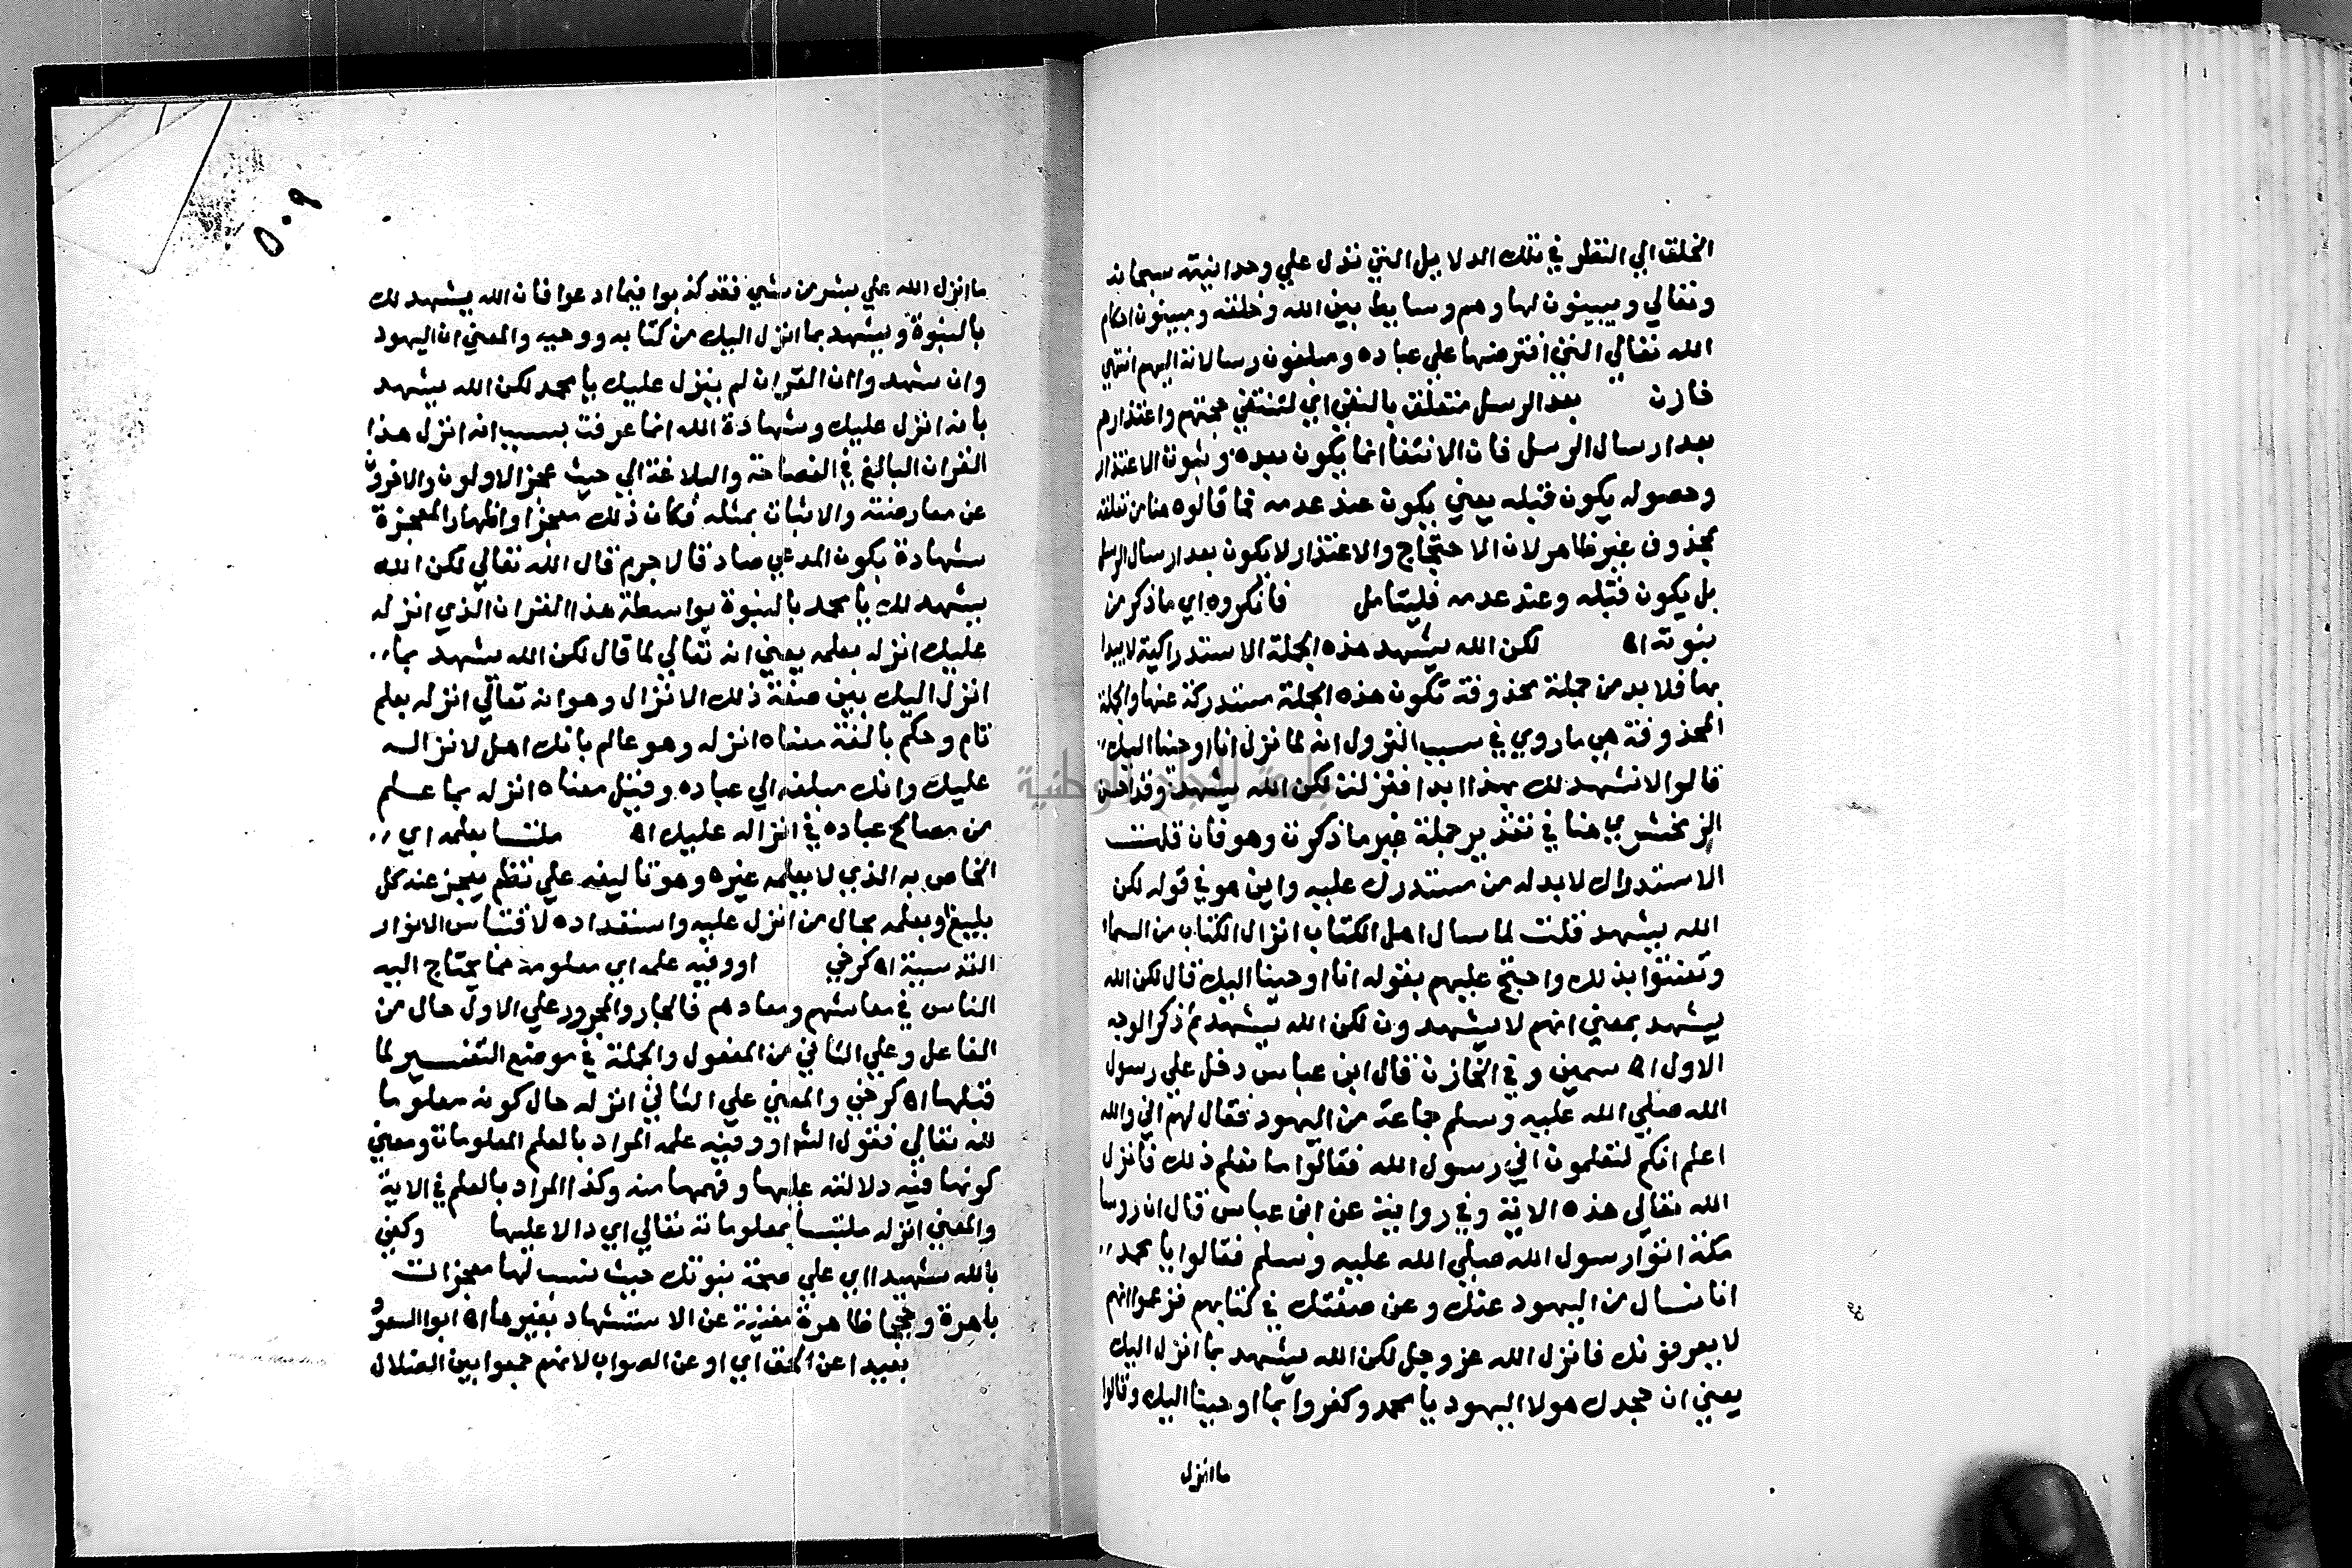 الخلق الي النظر في تلك الدلايل التي تدل علي وحدانيته سبحانه
وتعالي ويبينون لها وهم وسايط بين الله وخلقه ومبينون احكام
الله تعالي التي افترضها علي عباده ومبلغون رسالاته اليهم انتهي
خازن بعد الرسل متعلق بالنفي اي لتنتفي حجتهم واعتذارهم
بعد ارسال الرسل فان الانتفا انما يكون بعده وثبوت الاعتذار
وحصوله يكون قبله يعني يكون عند عدمه فما قالوه هنا من تعلقه
بمحذوف غير ظاهر لان الاحتجاج والاعتذار لا يكون بعد ارسال الرسل
بل يكون قبله وعند عدمه فليتامل فانكروه اي ما ذكر من
نبوته اه لكن الله يشهد هذه الجملة الاستدراكية لا يبدا
بها فلا بد من جملة محذوفة تكون هذه الجملة مستدركة عنها والجملة
المحذوفة هي ما روي في سبب النزول انه لما نزل انا اوحينا اليك
قالوا لا نشهد لك بهذا ابدا فنزلت لكن الله يشهد وقد احسن
الزمخشري هنا في تقدير جملة غير ما ذكرت وهو فان قلت
الاستدراك لا بد له من مستدرك عليه واين هو في قوله لكن
الله يشهد قلت لما سال اهل الكتاب انزال الكتاب من السماء
وتعنتوا بذلك واحتج عليهم بقوله انا اوحينا اليك قال لكن الله
يشهد بمعني انهم لا يشهدون لكن الله يشهد ثم ذكر الوجه
الاول اه سمين وفي الخازن قال ابن عباس دخل علي رسول
الله صلي الله عليه وسلم جماعة من اليهود فقال لهم اني والله
اعلم انكم لتعلمون اني رسول الله فقالوا ما نعلم ذلك فانزل
الله تعالي هذه الاية وفي رواية عن ابن عباس قال ان روسا
مكة اتوا رسول الله صلي الله عليه وسلم فقالوا يا محمد
انا نسال من اليهود عنك وعن صفتك في كتابهم فزعموا انهم
لا يعرفونك فانزل الله عز وجل لكن الله يشهد بما انزل اليك
يعني ان جحدك هولا اليهود يا محمد وكفروا بما اوحينا اليك وقالوا
ما انزل
٥٠٩
ما انزل الله علي بشر من شي فقد كذبوا فيما ادعوا فان الله يشهد لك
بالنبوة ويشهد بما انزل اليك من كتابه ووحيه والمعني ان اليهود
وان شهدوا ان القران لم ينزل عليك يا محمد لكن الله يشهد
بانه انزل عليك وشهادة الله انما عرفت بسبب انه انزل هذا
القران البالغ في الفصاحة والبلاغة الي حيث عجز الاولون والاخرون
عن معارضته والاتيان بمثله فكان ذلك معجزا واظهار المعجزة
شهادة بكون المدعي صادقا لا جرم قال الله تعالي لكن الله
يشهد لك يا محمد بالنبوة بواسطة هذا القران الذي انزله
عليك انزله بعلمه يعني انه تعالي لما قال لكن الله يشهد بما
انزل اليك بين صفة ذلك الانزال وهو انه تعالي انزله بعلم
تام وحكم بالغة معناه انزله وهو عالم بانك اهل لانزاله
عليك وانك مبلغه الي عباده وقيل معناه انزله بما علم
من مصالح عباده في انزاله عليك اه ملتبسا بعلمه اي
الخاص به الذي لا يعلمه غيره وهو تاليفه علي نظم يعجز عنه كل
بليغ او بعلمه بحال من انزل عليه واستعداده لاقتباس الانوار
القدسية اه كرخي او وفيه علمه اي معلومه مما يحتاج اليه
الناس في معاشهم ومعادهم فالجار والمجرور علي الاول حال من
الفاعل وعلي الثاني من المفعول والجملة في موضع التفسير لما
قبلها اه كرخي والمعني علي الثاني انزله حال كونه معلوما
لله تعالي فقول الش او وفيه علمه المراد بالعلم المعلومات ومعني
كونها فيه دلالته عليها وفهمها منه وكذا المراد بالعلم في الاية
والمعني انزله ملتبسا بمعلوماته تعالي اي دالا عليها وكفي
بالله شهيدا اي علي صحة نبوتك حيث نسب لها معجزات
باهرة وحججا ظاهرة مغنية عن الاستشهاد بغيرها اه ابوا السعود
بعيدا عن الحق اي او عن الصواب لانهم جمعوا بين الضلال
جامعة النجاح الوطنية